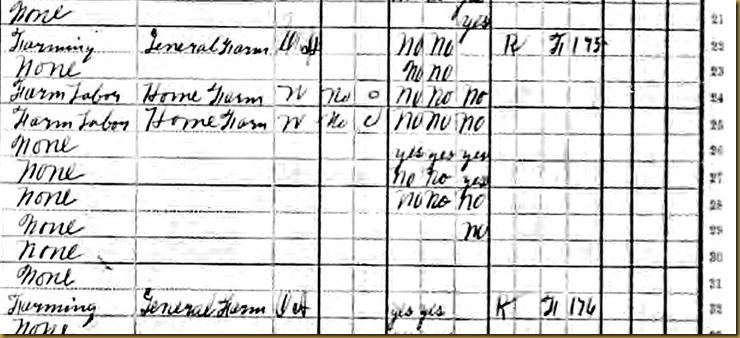 None yes 21
Farming General Farm no no R F 175 22
None no no 23
Farm Labor Home Farm W no 0 no no no 24
Farm Labor Home Farm W no 0 no no no 25
None yes yes yes 26
None no no yes 27
None no no no 28
None no 29
None 30
None 31
Farming General Farm yes yes R F 176 32
None